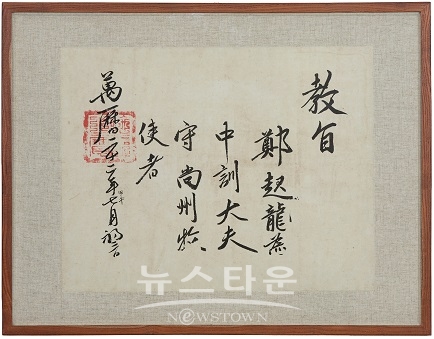 教旨
鄭起龍為
中訓大夫
守尚州牧
使者
萬曆二十二年七月初
뉴스타운
NEWSTOWN